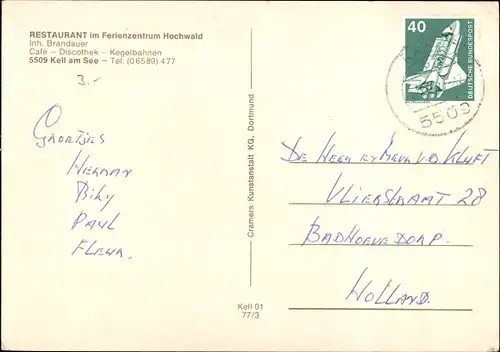 RESTAURANT im Ferienzentrum Hochwald
Inh. Brandauer
Café – Discothek – Kegelbahnen
5509 Kell am See – Tel. (0 65 89) 4 77
3.-
Groetjes
Herman
Paul
Fleur.
Cramers Kunstanstalt KG, Dortmund
Kell 01
77/3
40
DEUTSCHE BUNDESPOST
5509
De Heer en Mevr v.d. Kluft
Vlierstraat 28
Badhoevedorp.
Holland.